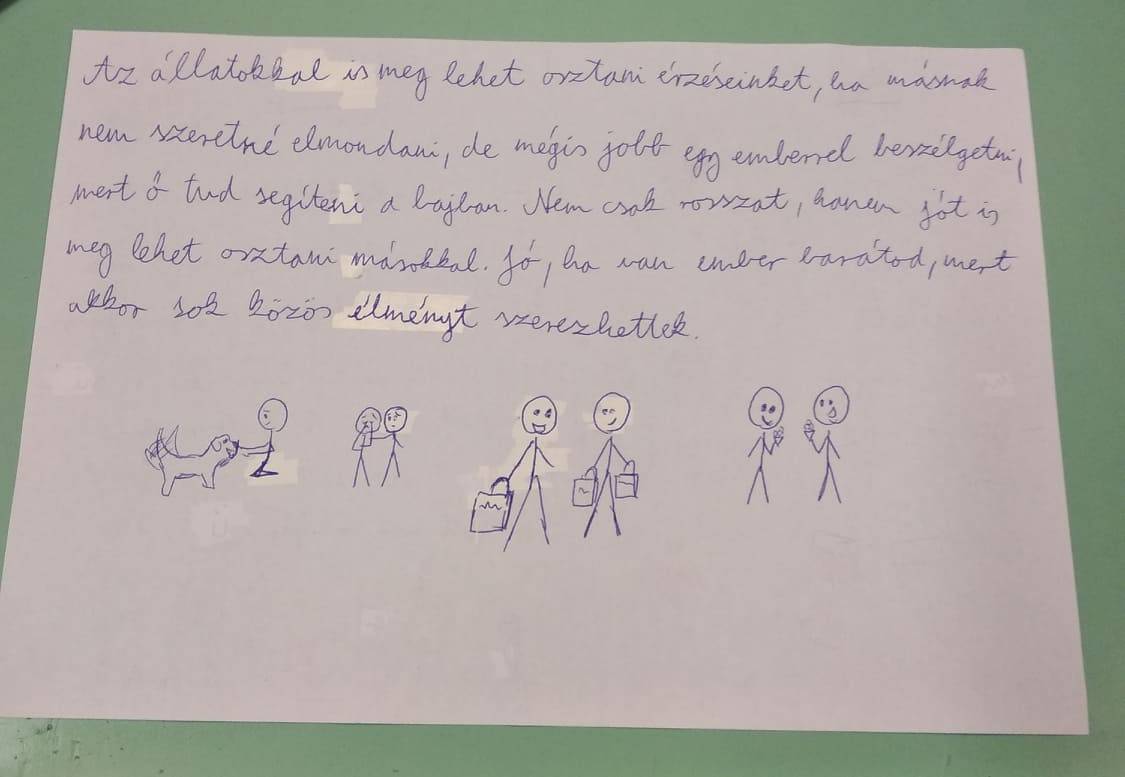 Az állatokkal is meg lehet osztani érzéseinket, ha másnak
nem szeretné elmondani, de mégis jobb egy emberrel beszélgetni,
mert ő tud segíteni a bajban. Nem csak rosszat, hanem jót is
meg lehet osztani másokkal. Jó, ha van ember barátod, mert
akkor sok közös élményt szerezhettek.